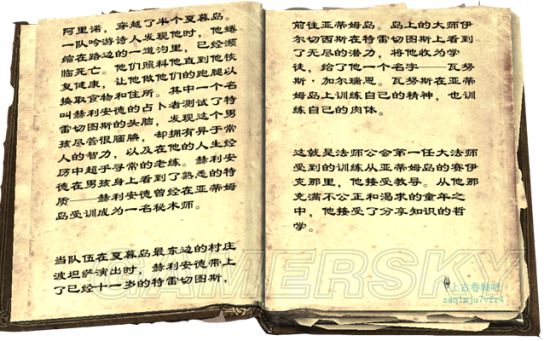 阿里诺，穿越了半个夏暮岛。
一队吟游诗人发现他时，他蜷
缩在路边的一道沟里，已经濒
临死亡。他们照料他直到他恢
复健康，让他做他们的跑腿以
换取食物和住所。其中一个名
叫赫利安德的占卜者测试了特
雷切图斯的头脑，发现这个男
孩尽管很腼腆，却拥有异于常
人的智力，以及在他的人生经
历中超乎寻常的老练。赫利安
德在男孩身上看到了熟悉的特
质——赫利安德曾经在亚蒂姆
岛受训成为一名秘术师。
当队伍在夏暮岛最东边的村庄
波坦萨演出时，赫利安德带上
了已经十一岁的特雷切图斯，
前往亚蒂姆岛。岛上的大师伊
尔切西斯在特雷切图斯上看到
了无尽的潜力，将他收为学
徒，给了他一个名字——瓦努
斯·加尔瑞恩。瓦努斯在亚蒂
姆岛上训练自己的精神，也训
练自己的肉体。
这就是法师公会第一任大法师
受到的训练从亚蒂姆岛的赛伊
克那里，他接受教导。从他那
充满不公正和渴求的童年之
中，他接受了分享知识的哲
学。
GAMERSKY
上古卷轴吧
zaqimju7vfr4